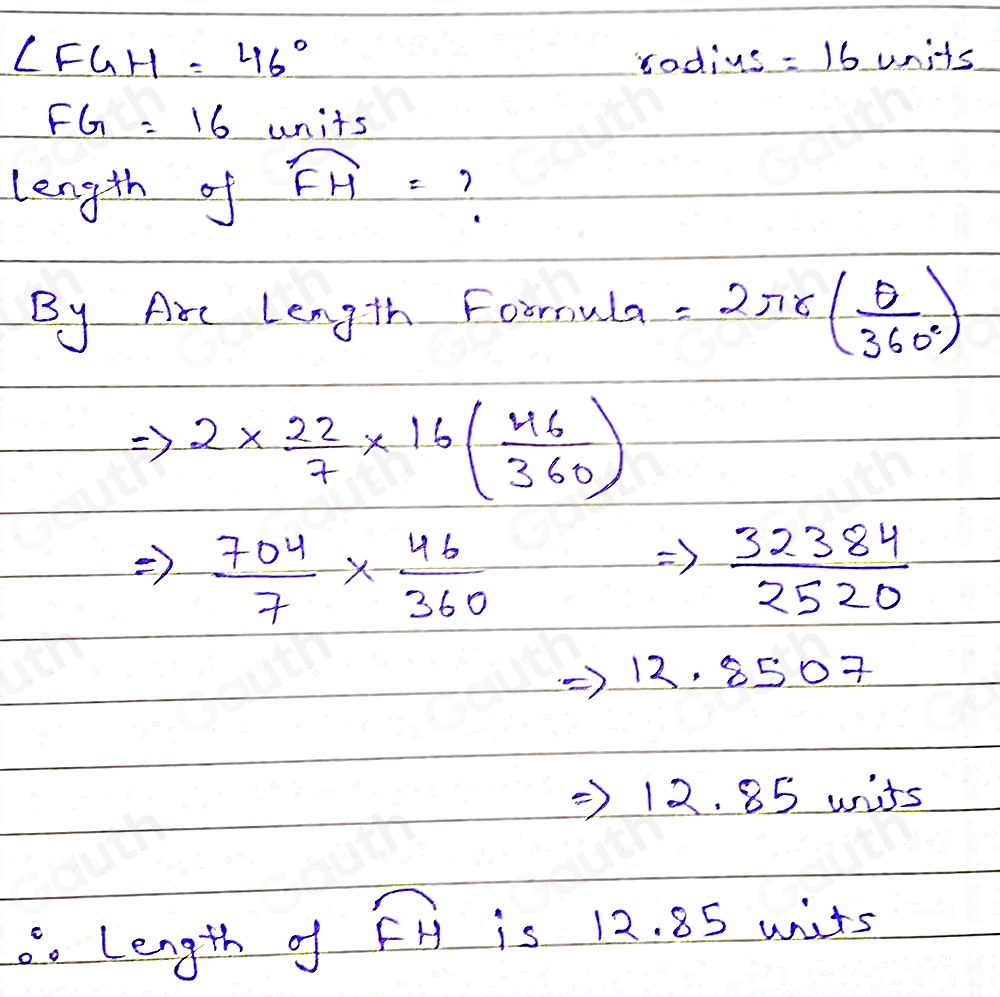 ∠FGH = 46° radius = 16 units
FG = 16 units
Length of FH = ?
By Arc Length Formula = 2πr(θ/360°)
=> 2 × 22/7 × 16(46/360)
=> 704/7 × 46/360 => 32384/2520
=> 12.8507
=> 12.85 units
∴ Length of FH is 12.85 units
Gauth